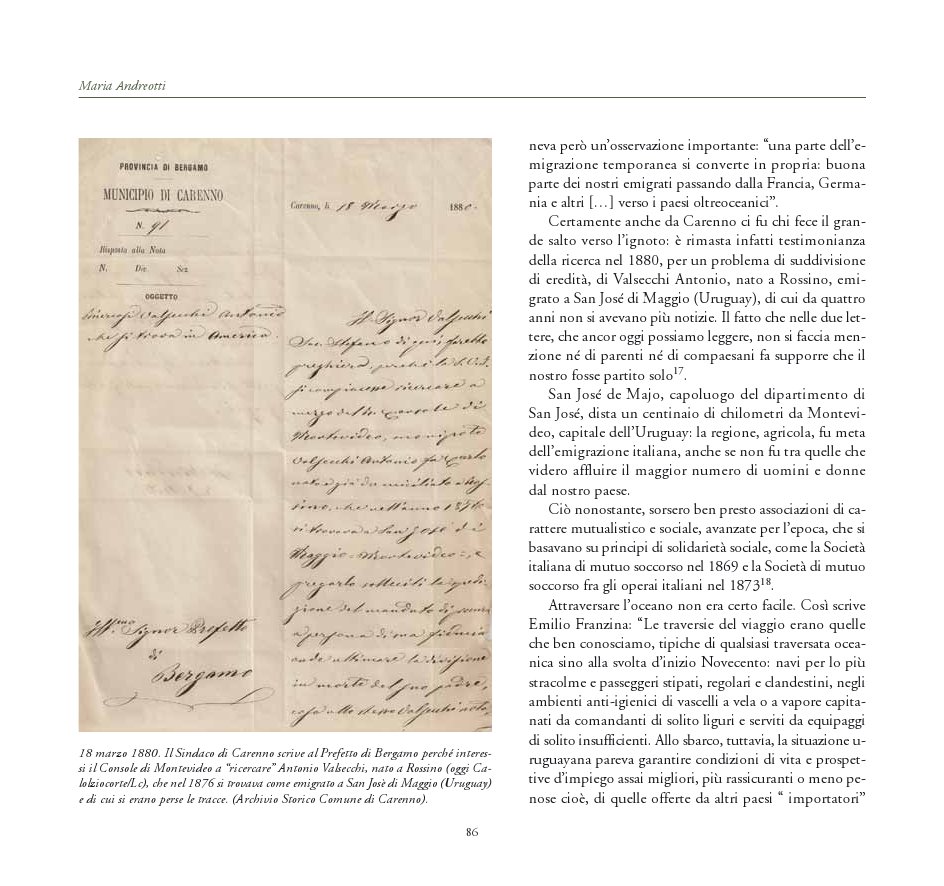 Maria Andreotti
PROVINCIA DI BERGAMO
MUNICIPIO DI CARENNO
N. 91
Risposta alla Nota
N. Div. Sez.
OGGETTO
Valsecchi Antonio
che si trova in America.
Ill.mo Signor Prefetto
di
Bergamo
Carenno, li 18 Marzo 1880.
Il Signor Valsecchi
Stefano di qui, farebbe
preghiera, perché la S.V.I.
si compiacesse ricercare a
mezzo del Console di
Montevideo,
Valsecchi Antonio fu
nato e già domiciliato a Ros-
sino, che nell'anno 1876
si trovava a San José di
Maggio = Montevideo =, e
pregarlo solleciti la spedi-
zione del mandato di
a persona di sua fiducia
onde ultimare la divisione
in morte del suo padre,
Valsecchi
18 marzo 1880. Il Sindaco di Carenno scrive al Prefetto di Bergamo perché interes-
si il Console di Montevideo a “ricercare” Antonio Valsecchi, nato a Rossino (oggi Ca-
lolziocorte/Lc), che nel 1876 si trovava come emigrato a San Josè di Maggio (Uruguay)
e di cui si erano perse le tracce. (Archivio Storico Comune di Carenno).
neva però un’osservazione importante: “una parte dell’e-
migrazione temporanea si converte in propria: buona
parte dei nostri emigrati passando dalla Francia, Germa-
nia e altri […] verso i paesi oltreoceanici”.
Certamente anche da Carenno ci fu chi fece il gran-
de salto verso l’ignoto: è rimasta infatti testimonianza
della ricerca nel 1880, per un problema di suddivisione
di eredità, di Valsecchi Antonio, nato a Rossino, emi-
grato a San José di Maggio (Uruguay), di cui da quattro
anni non si avevano più notizie. Il fatto che nelle due let-
tere, che ancor oggi possiamo leggere, non si faccia men-
zione né di parenti né di compaesani fa supporre che il
nostro fosse partito solo17.
San José de Majo, capoluogo del dipartimento di
San José, dista un centinaio di chilometri da Montevi-
deo, capitale dell’Uruguay: la regione, agricola, fu meta
dell’emigrazione italiana, anche se non fu tra quelle che
videro affluire il maggior numero di uomini e donne
dal nostro paese.
Ciò nonostante, sorsero ben presto associazioni di ca-
rattere mutualistico e sociale, avanzate per l’epoca, che si
basavano su principi di solidarietà sociale, come la Società
italiana di mutuo soccorso nel 1869 e la Società di mutuo
soccorso fra gli operai italiani nel 187318.
Attraversare l’oceano non era certo facile. Così scrive
Emilio Franzina: “Le traversie del viaggio erano quelle
che ben conosciamo, tipiche di qualsiasi traversata ocea-
nica sino alla svolta d’inizio Novecento: navi per lo più
stracolme e passeggeri stipati, regolari e clandestini, negli
ambienti anti-igienici di vascelli a vela o a vapore capita-
nati da comandanti di solito liguri e serviti da equipaggi
di solito insufficienti. Allo sbarco, tuttavia, la situazione u-
ruguayana pareva garantire condizioni di vita e prospet-
tive d’impiego assai migliori, più rassicuranti o meno pe-
nose cioè, di quelle offerte da altri paesi “ importatori”
86